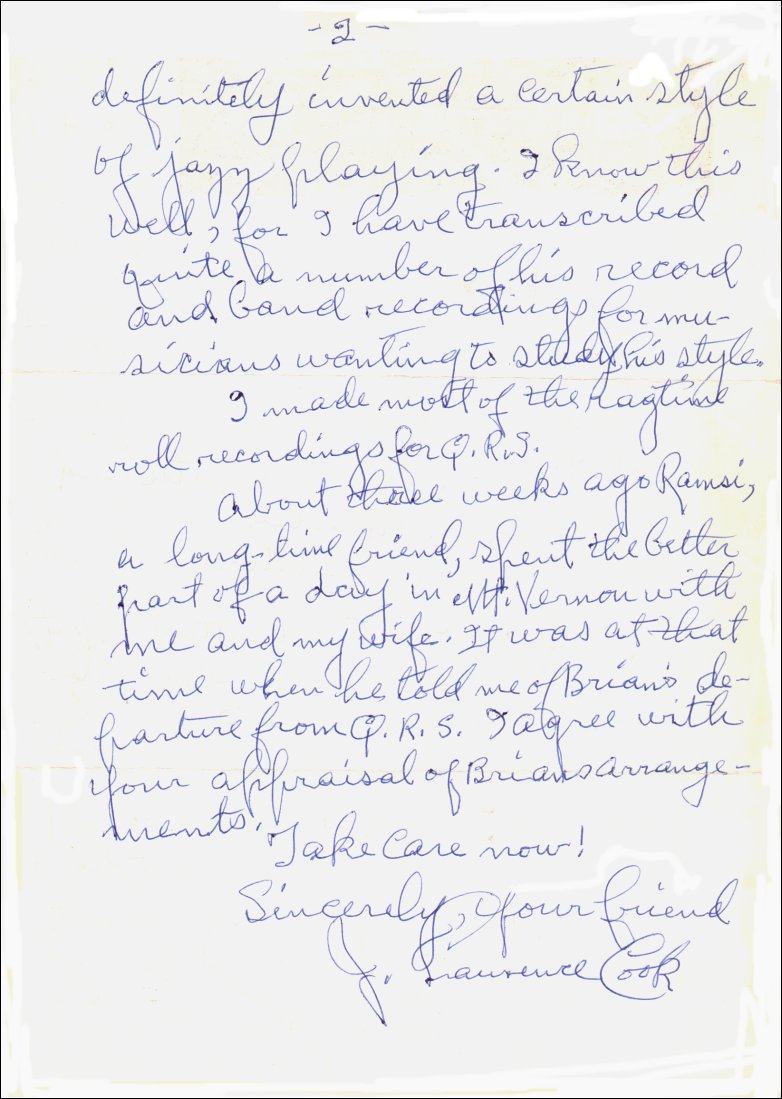 - 2 -
definitely invented a certain style
of jazz playing. I know this
well, for I have transcribed
quite a number of his record
and band recordings for mu-
sicians wanting to study his style.
I made most of the ragtime
roll recordings for Q.R.S.
About three weeks ago Ramsi,
a long-time friend, spent the better
part of a day in Mt. Vernon with
me and my wife. It was at that
time when he told me of Brian's de-
parture from Q.R.S. I agree with
your appraisal of Brians arrange-
ments.
Take Care now!
Sincerely, Your friend
J. Lawrence Cook